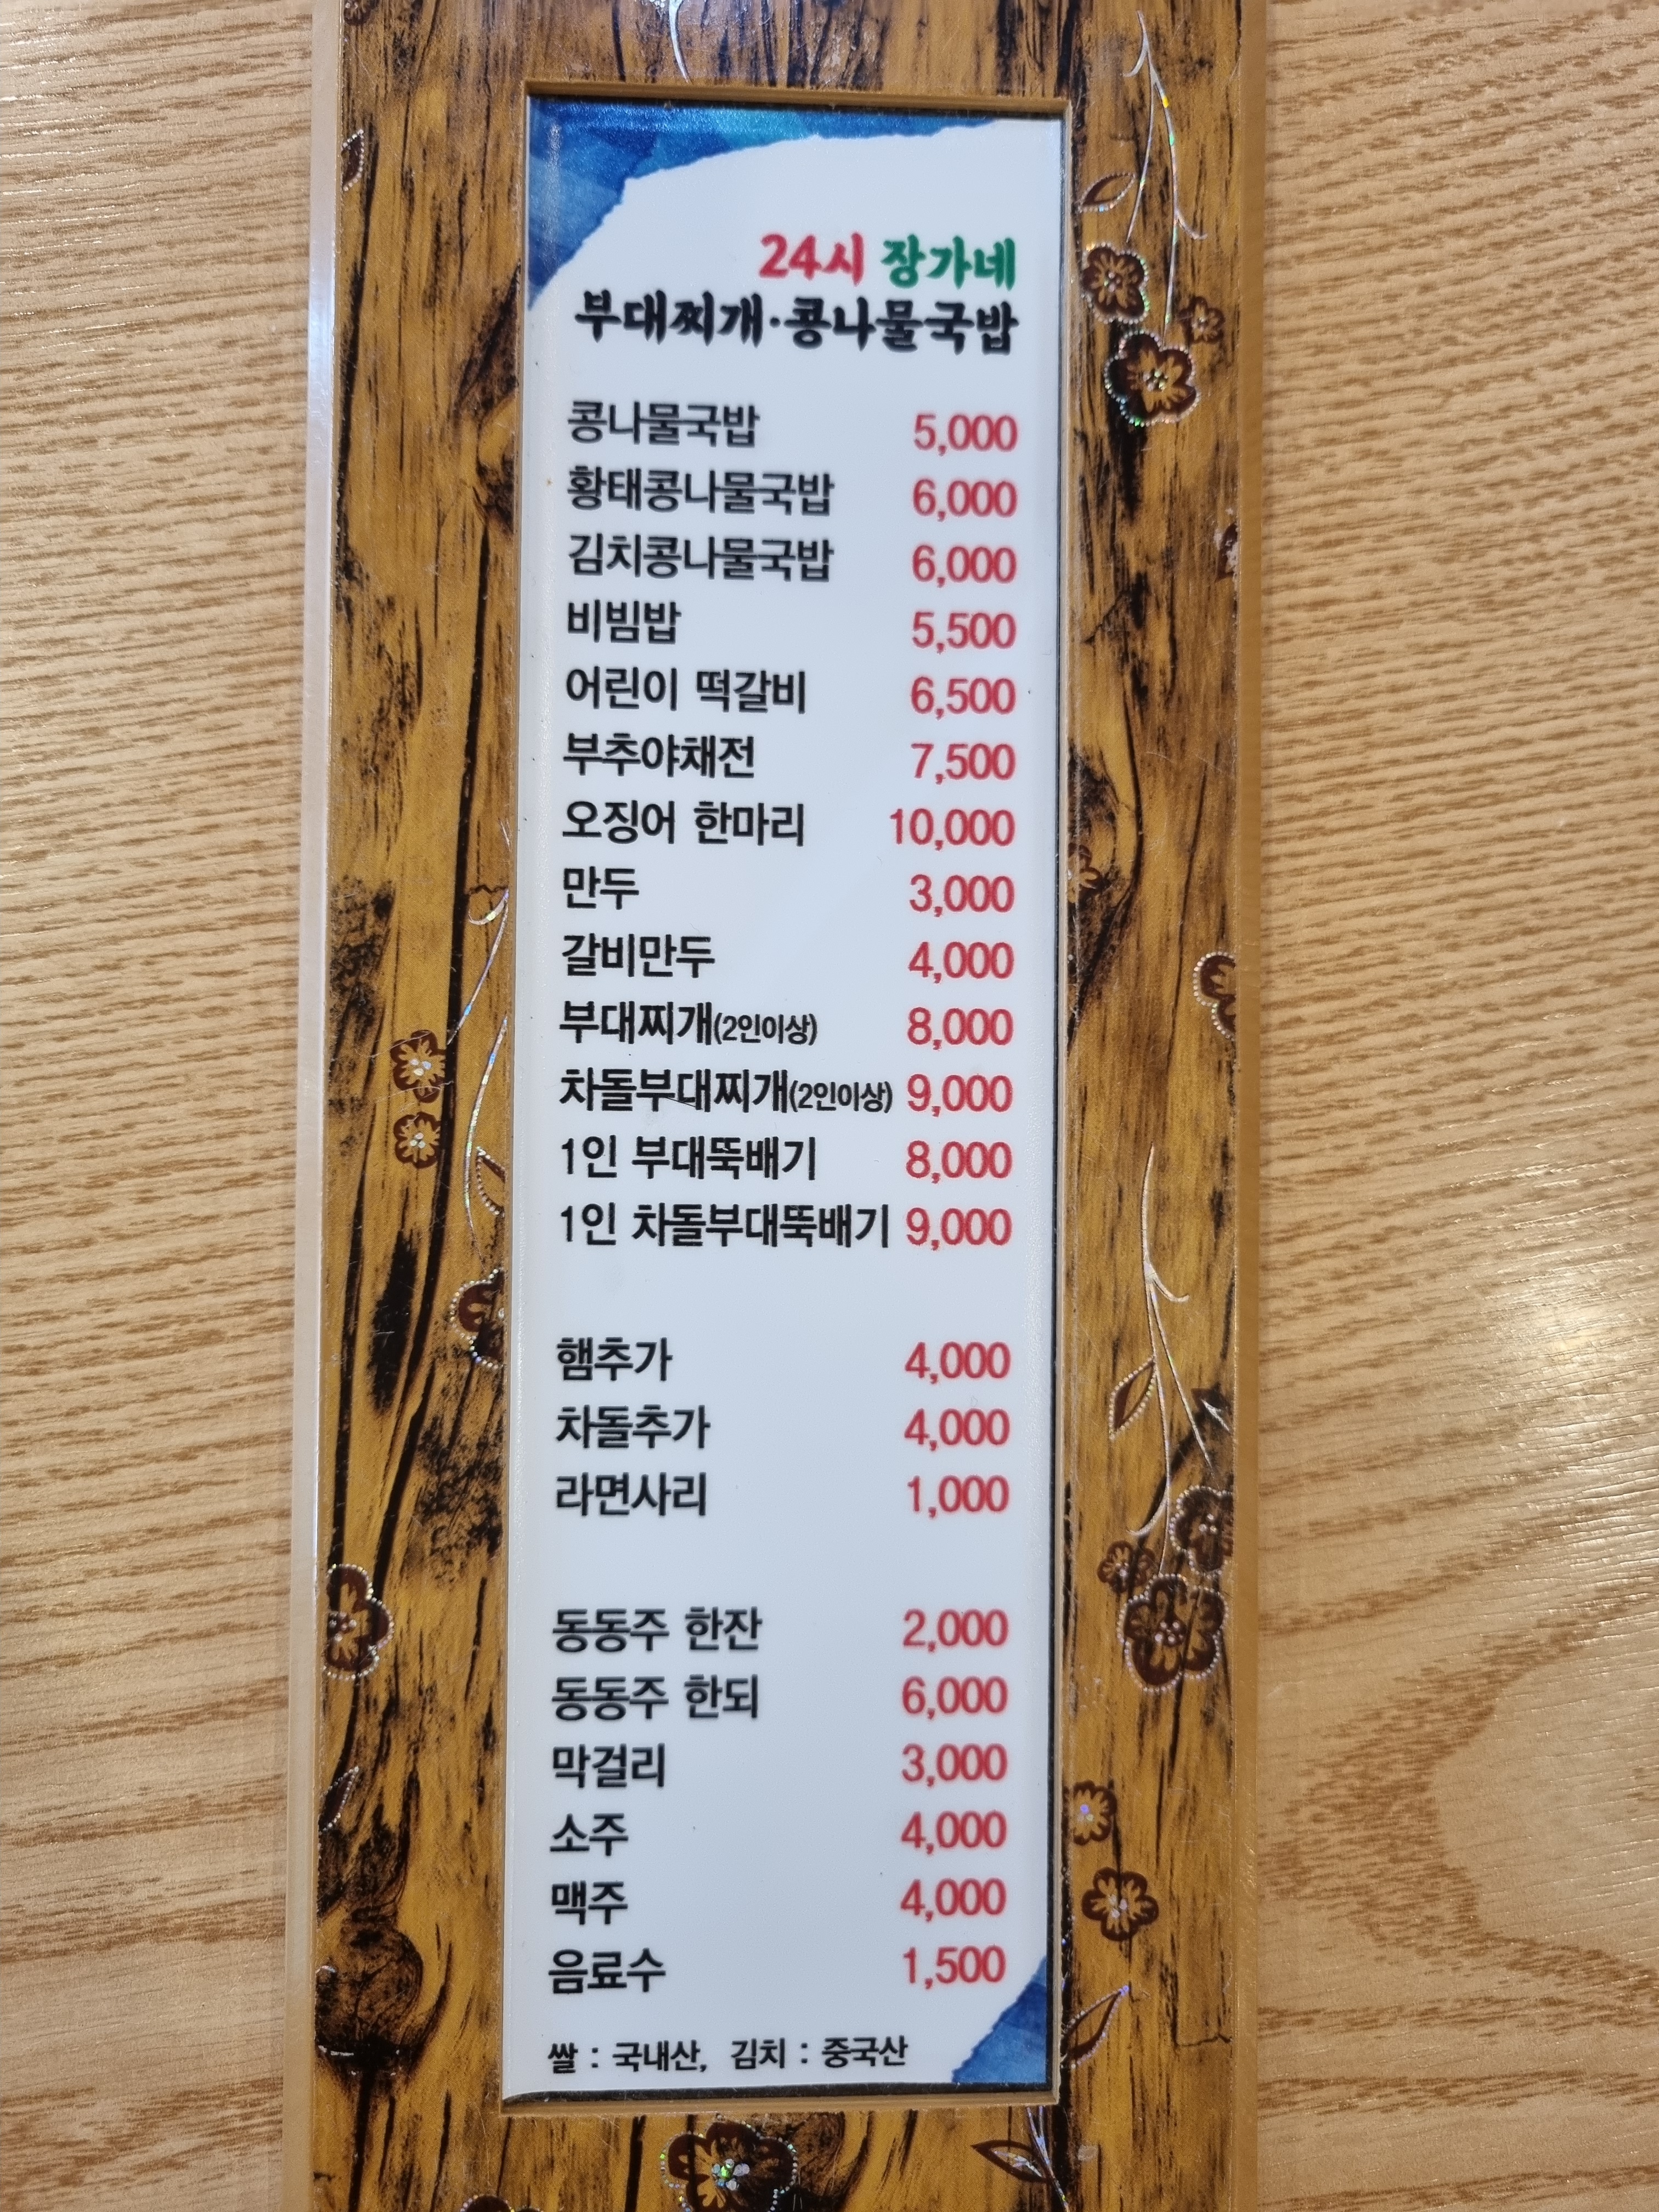 24시 장가네
부대찌개·콩나물국밥
콩나물국밥 5,000
황태콩나물국밥 6,000
김치콩나물국밥 6,000
비빔밥 5,500
어린이 떡갈비 6,500
부추야채전 7,500
오징어 한마리 10,000
만두 3,000
갈비만두 4,000
부대찌개(2인이상) 8,000
차돌부대찌개(2인이상) 9,000
1인 부대뚝배기 8,000
1인 차돌부대뚝배기 9,000
햄추가 4,000
차돌추가 4,000
라면사리 1,000
동동주 한잔 2,000
동동주 한되 6,000
막걸리 3,000
소주 4,000
맥주 4,000
음료수 1,500
쌀 : 국내산, 김치 : 중국산